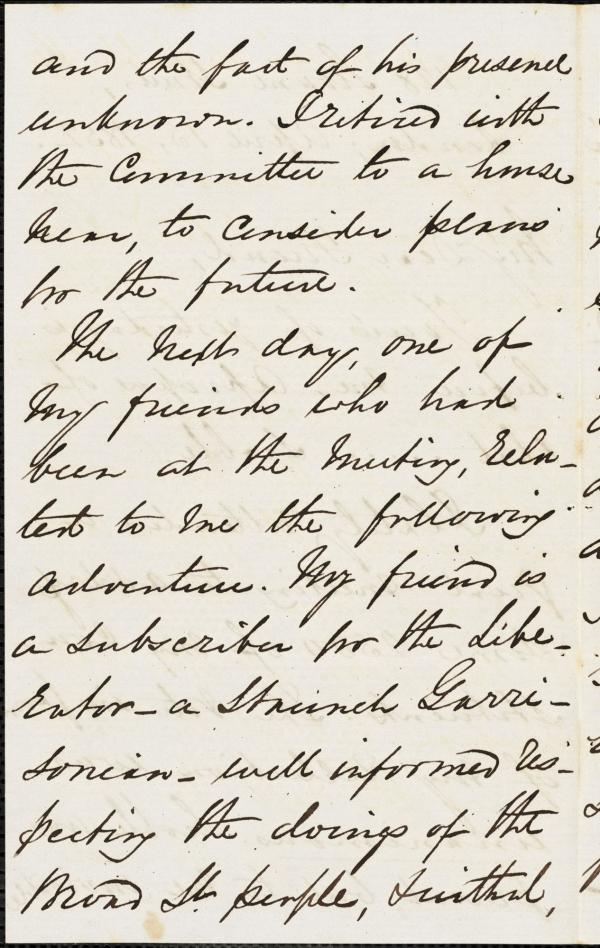 and the fact of his presence
unknown. I retired with
the Committee to a house
near, to consider plans
for the future.
The next day, one of
my friends who had
been at the meeting, rela-
ted to me the following
adventure. My friend is
a subscriber for the Libe-
rator – a Staunch Garri-
sonian – well informed res-
pecting the doings of the
Broad St. people,